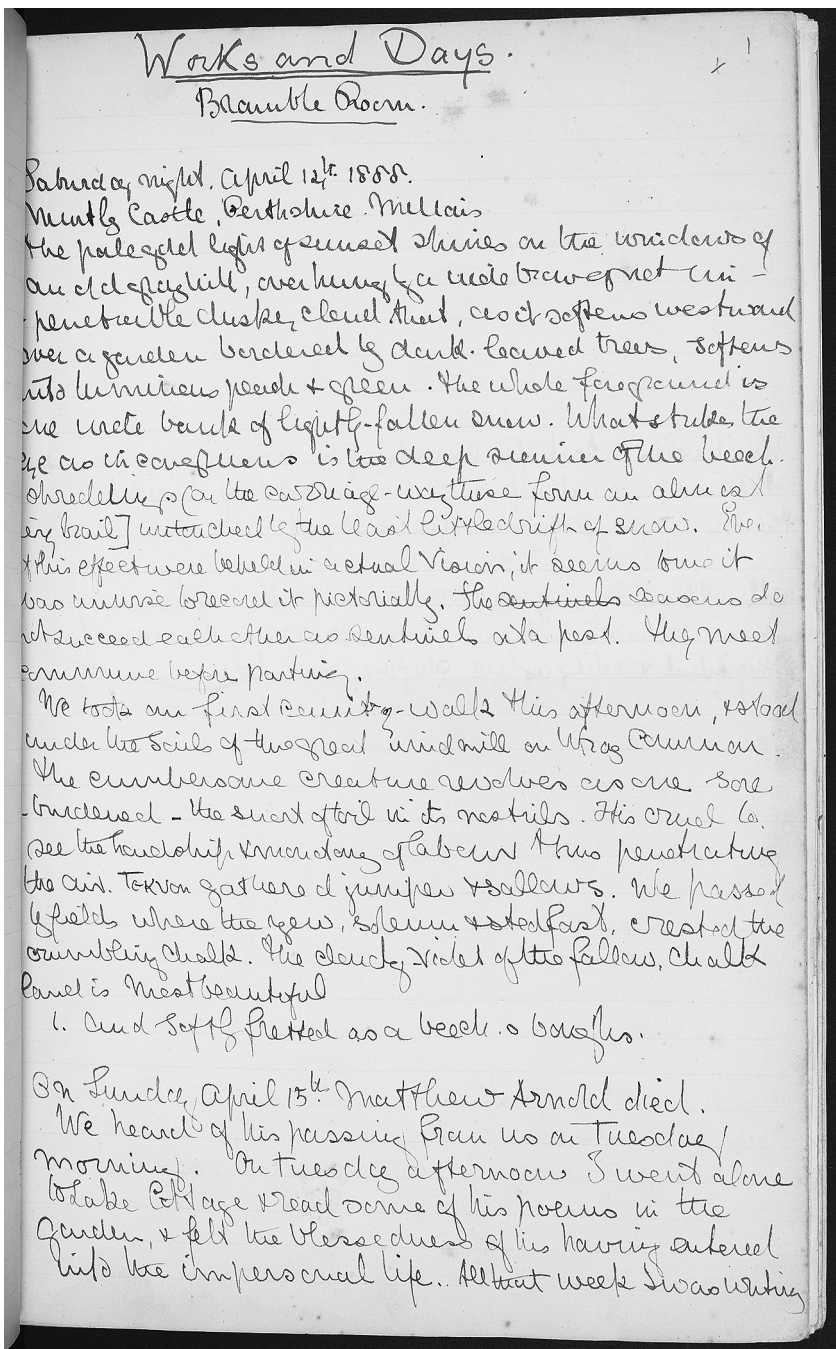 1
Works and Days.
Bramble Room.
Saturday night. April 14th. 1888.
Murtly Castle, Perthshire. Millais
The pale gold light of sunset shines on the windows of
an old gray hill, overhung by a wide brow of not im-
-penetrable dusky cloud that, as it softens westward
over a garden bordered by dark-leaved trees, softens
into luminous peach & green. The whole foreground is
one wide bank of lightly-fallen snow. What strikes the
eye as is the deep of the beech.
(on the carriage-way these form an almost
trail] untouched by the least little drift of snow. Even
if this effect were beheld in actual vision, it seems to me it
was unwise to record it pictorially. The sentinels seasons do
not succeed each other as sentinels at a post. They meet
commune before parting.
We took our first country-walk this afternoon, & stood
under the sails of the great windmill on Wray Common.
The cumbersome creature revolves as one sore
-burdened - the snort of toil in its nostrils. It is cruel to
see the hardship & monotony of labour thus penetrating
the air. gathered juniper & sallows. We passed
by fields where the yew, solemn & stedfast, crested the
crumbling chalk. The cloudy violet of the fallow, chalk
land is most beautiful
1. And softly fretted as a beech's boughs.
On Sunday April 15th. Matthew Arnold died.
We heard of his passing from us on Tuesday
morning. On Tuesday afternoon I went alone
to Lake Cottage & read some of his poems in the
garden, & felt the blessedness of his having entered
into the impersonal life. All that week I was writing